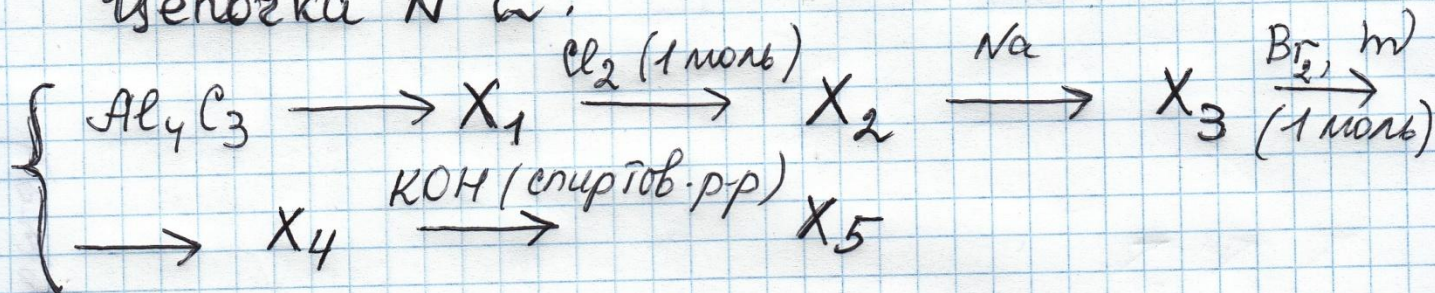 Цепочка N 2.
Al₄C₃ ⟶ X₁ Cl₂ (1 моль) ⟶ X₂ Na ⟶ X₃ Br₂, hν (1 моль) ⟶
⟶ X₄ KOH (спиртов. р-р) ⟶ X₅